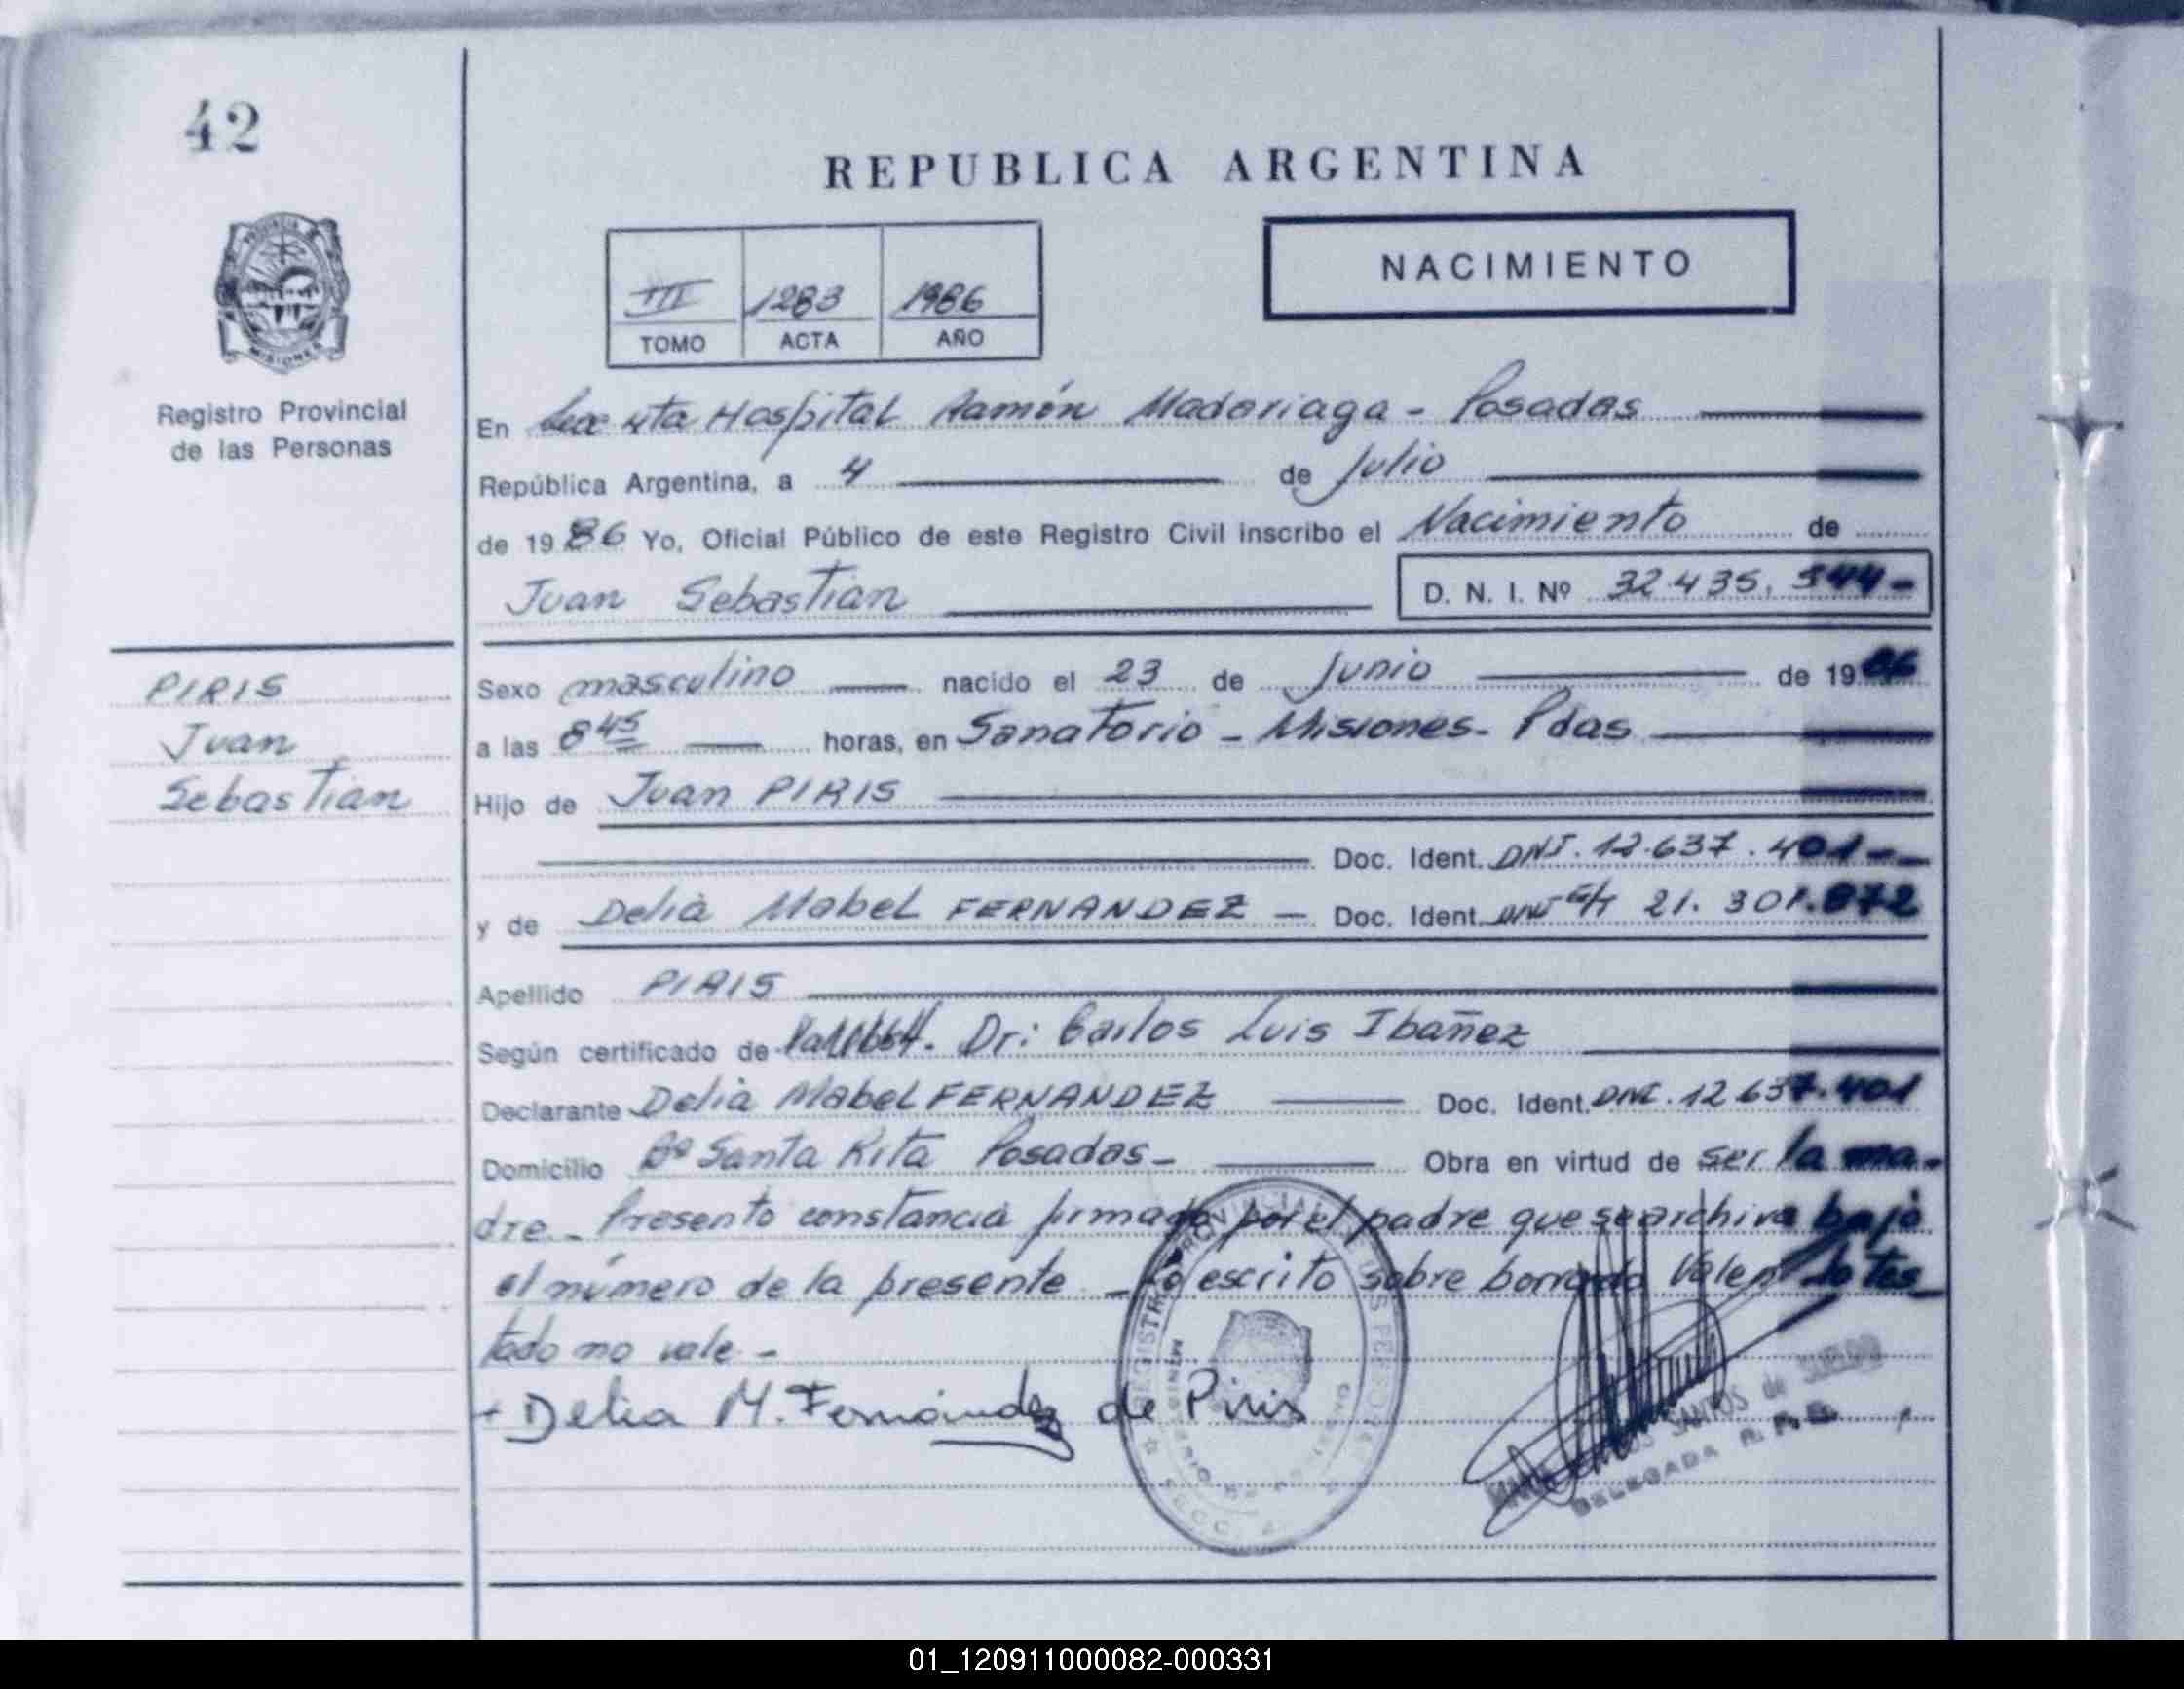 42
REPUBLICA ARGENTINA
NACIMIENTO
III 1283 1986
TOMO ACTA AÑO
PROVINCIA DE MISIONES
Registro Provincial
de las Personas
En Secc 4ta Hospital Ramón Madariaga - Posadas
República Argentina, a 4 de Julio
de 1986 Yo, Oficial Público de este Registro Civil inscribo el Nacimiento de
Juan Sebastian D. N. I. Nº 32.435.344-
PIRIS
Juan
Sebastian
Sexo masculino nacido el 23 de Junio de 1986
a las 8 45 horas, en Sanatorio - Misiones - Pdas
Hijo de Juan PIRIS
Doc. Ident. DNI. 12.637.401-
y de Delia Mabel FERNANDEZ - Doc. Ident. DNI 21.301.872
Apellido PIRIS
Según certificado de Dr: Carlos Luis Ibañez
Declarante Delia Mabel FERNANDEZ Doc. Ident. DNI. 12.637.401
Domicilio Bº Santa Rita Posadas - Obra en virtud de ser la ma-
dre - Presento constancia firmada por el padre que se archiva bajo
el número de la presente - Lo escrito sobre borrado Vale lo tes-
tado no vale -
+ Delia M. Fernández de Piris
REGISTRO PROVINCIAL DE LAS PERSONAS
SANTOS de
DELEGADA R. P. P.
01_120911000082-000331